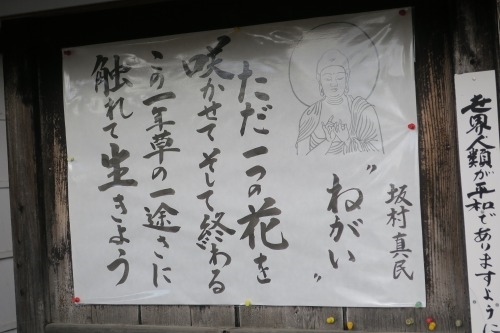 世界人類が平和でありますよう
坂村真民
"ねがい"
ただ一つの花を
咲かせてそして終わる
この一年草の一途さに
触れて生きよう